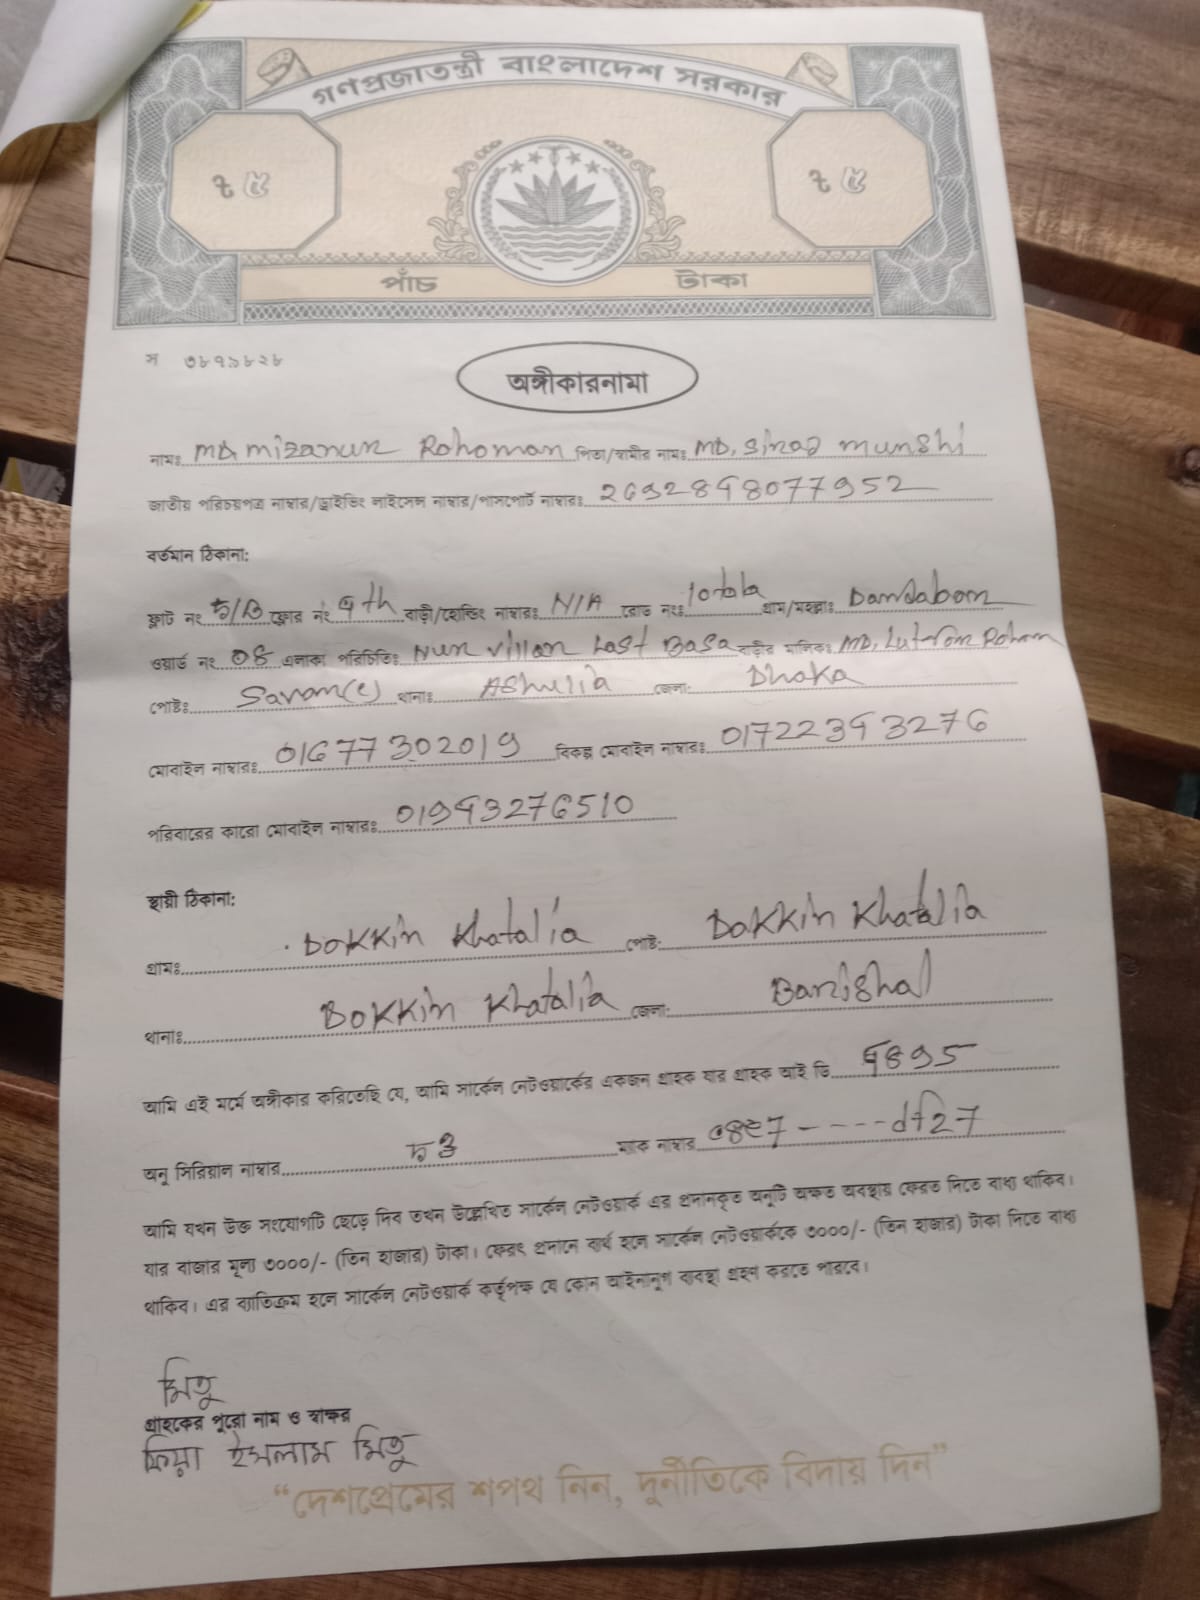 গণপ্রজাতন্ত্রী বাংলাদেশ সরকার
৳ ৫ ৳ ৫
পাঁচ টাকা
স ৩৮৭৯৮২৮
অঙ্গীকারনামা
নামঃ MD mizanur Rohoman পিতা/স্বামীর নামঃ MD. Siraj munshi
জাতীয় পরিচয়পত্র নাম্বার/ড্রাইভিং লাইসেন্স নাম্বার/পাসপোর্ট নাম্বারঃ 2692848077952
বর্তমান ঠিকানা:
ফ্লাট নং 5/B ফ্লোর নং 4th বাড়ী/হোল্ডিং নাম্বারঃ N/A রোড নংঃ 10 tola গ্রাম/মহল্লাঃ Dandabom
ওয়ার্ড নং 08 এলাকা পরিচিতিঃ Nur villan Last Basa বাড়ীর মালিকঃ MD,
পোষ্টঃ থানাঃ AShulia জেলা: Dhaka
মোবাইল নাম্বারঃ 01677302019 বিকল্প মোবাইল নাম্বারঃ 01722343276
পরিবারের কারো মোবাইল নাম্বারঃ 01943276510
স্থায়ী ঠিকানা:
গ্রামঃ DOKKin Khatalia পোষ্ট: DOKKin Khatalia
থানাঃ BOKKin Khatalia জেলা: Barishal
আমি এই মর্মে অঙ্গীকার করিতেছি যে, আমি সার্কেল নেটওয়ার্কের একজন গ্রাহক যার গ্রাহক আই ডি 4895
অনু সিরিয়াল নাম্বার ম্যাক নাম্বার ----df27
আমি যখন উক্ত সংযোগটি ছেড়ে দিব তখন উল্লেখিত সার্কেল নেটওয়ার্ক এর প্রদানকৃত অনুটি অক্ষত অবস্থায় ফেরত দিতে বাধ্য থাকিব।
যার বাজার মূল্য ৩০০০/- (তিন হাজার) টাকা। ফেরৎ প্রদানে ব্যর্থ হলে সার্কেল নেটওয়ার্ককে ৩০০০/- (তিন হাজার) টাকা দিতে বাধ্য
থাকিব। এর ব্যাতিক্রম হলে সার্কেল নেটওয়ার্ক কর্তৃপক্ষ যে কোন আইনানুগ ব্যবস্থা গ্রহণ করতে পারবে।
মিতু
গ্রাহকের পুরো নাম ও স্বাক্ষর
ইসলাম মিতু
“দেশপ্রেমের শপথ নিন, দুর্নীতিকে বিদায় দিন”